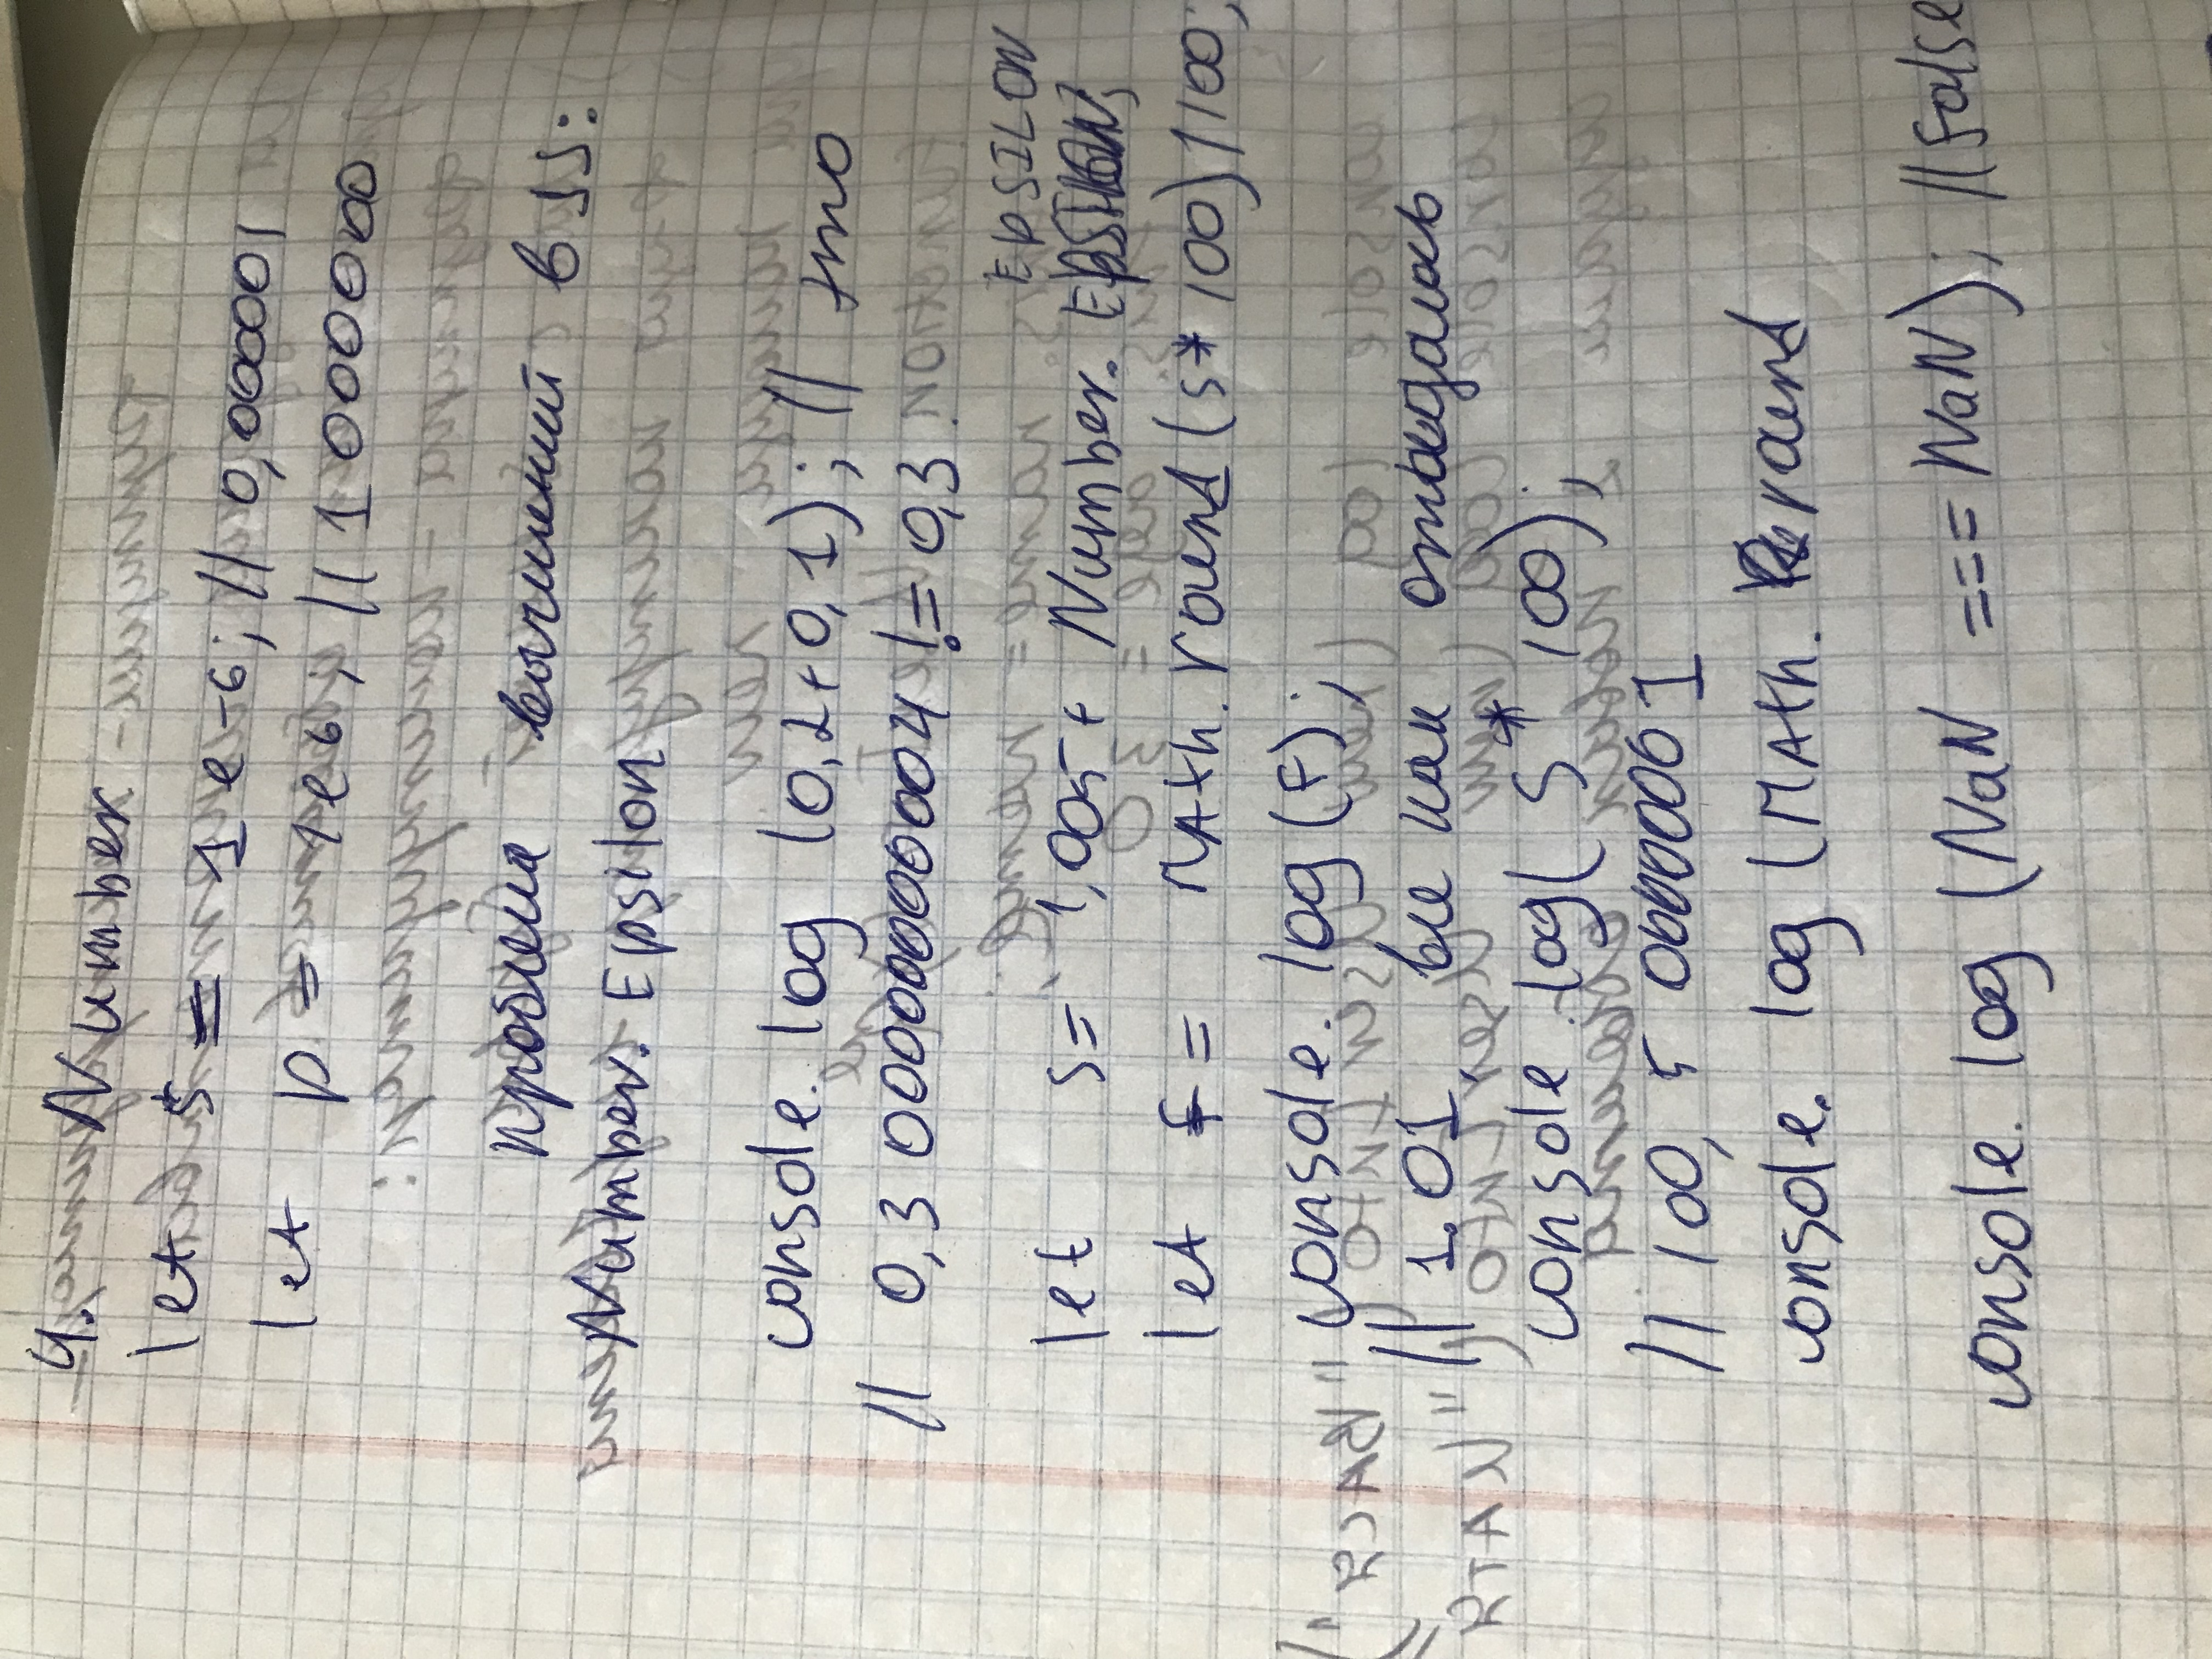 4. Number
let s = 1e-6; // 0,000001
let p = 1e6; // 1000000
проблема вычислений в JS:
Number. Epsilon
console. log (0,2+0,1); // это
// 0,3 00000000004 != 0,3.
EpSILON
let s= 1,005+ Number. EPSILON;
let f = MAth. round (s* 100)/100;
console. log (f);
// 1.01, все как ожидалось
console. log( S* 100);
// 100, 5 00000001
console. log (MAth. round
console. log (NaN === NaN); // false